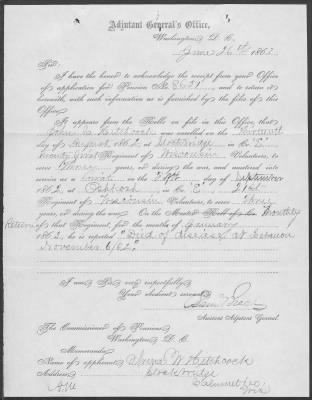 Adjutant General's Office,
Washington, D. C.,
June 26th 1863
Sir:
I have the honor to acknowledge the receipt from your Office
of application for Pension No. 2621, and to return it
herewith, with such information as is furnished by the files of this
Office.
It appears from the Rolls on file in this Office, that
John C. Hitchcock was enrolled on the
day of August, 1862, at Stockbridge, in Co. "E",
Twenty first Regiment of Wisconsin Volunteers, to
serve three years, or during the war, and mustered into
service as a on the day of September
1862, at Oshkosh, in Co. "E", 21st
Regiment of Wisconsin Volunteers, to serve three
years, or during the war. On the Muster Roll of Co. Monthly
Return of that Regiment, for the months of January
1863, he is reported "Died of disease, at Lebanon
November 6/62."
I am Sir very respectfully
Your obedient servant,
Assistant Adjutant General.
The Commissioner of Pensions
Washington, D. C.
Memoranda:
Name of applicant, W. Hitchcock
Address, Stockbridge
Calumet Co.
Wis